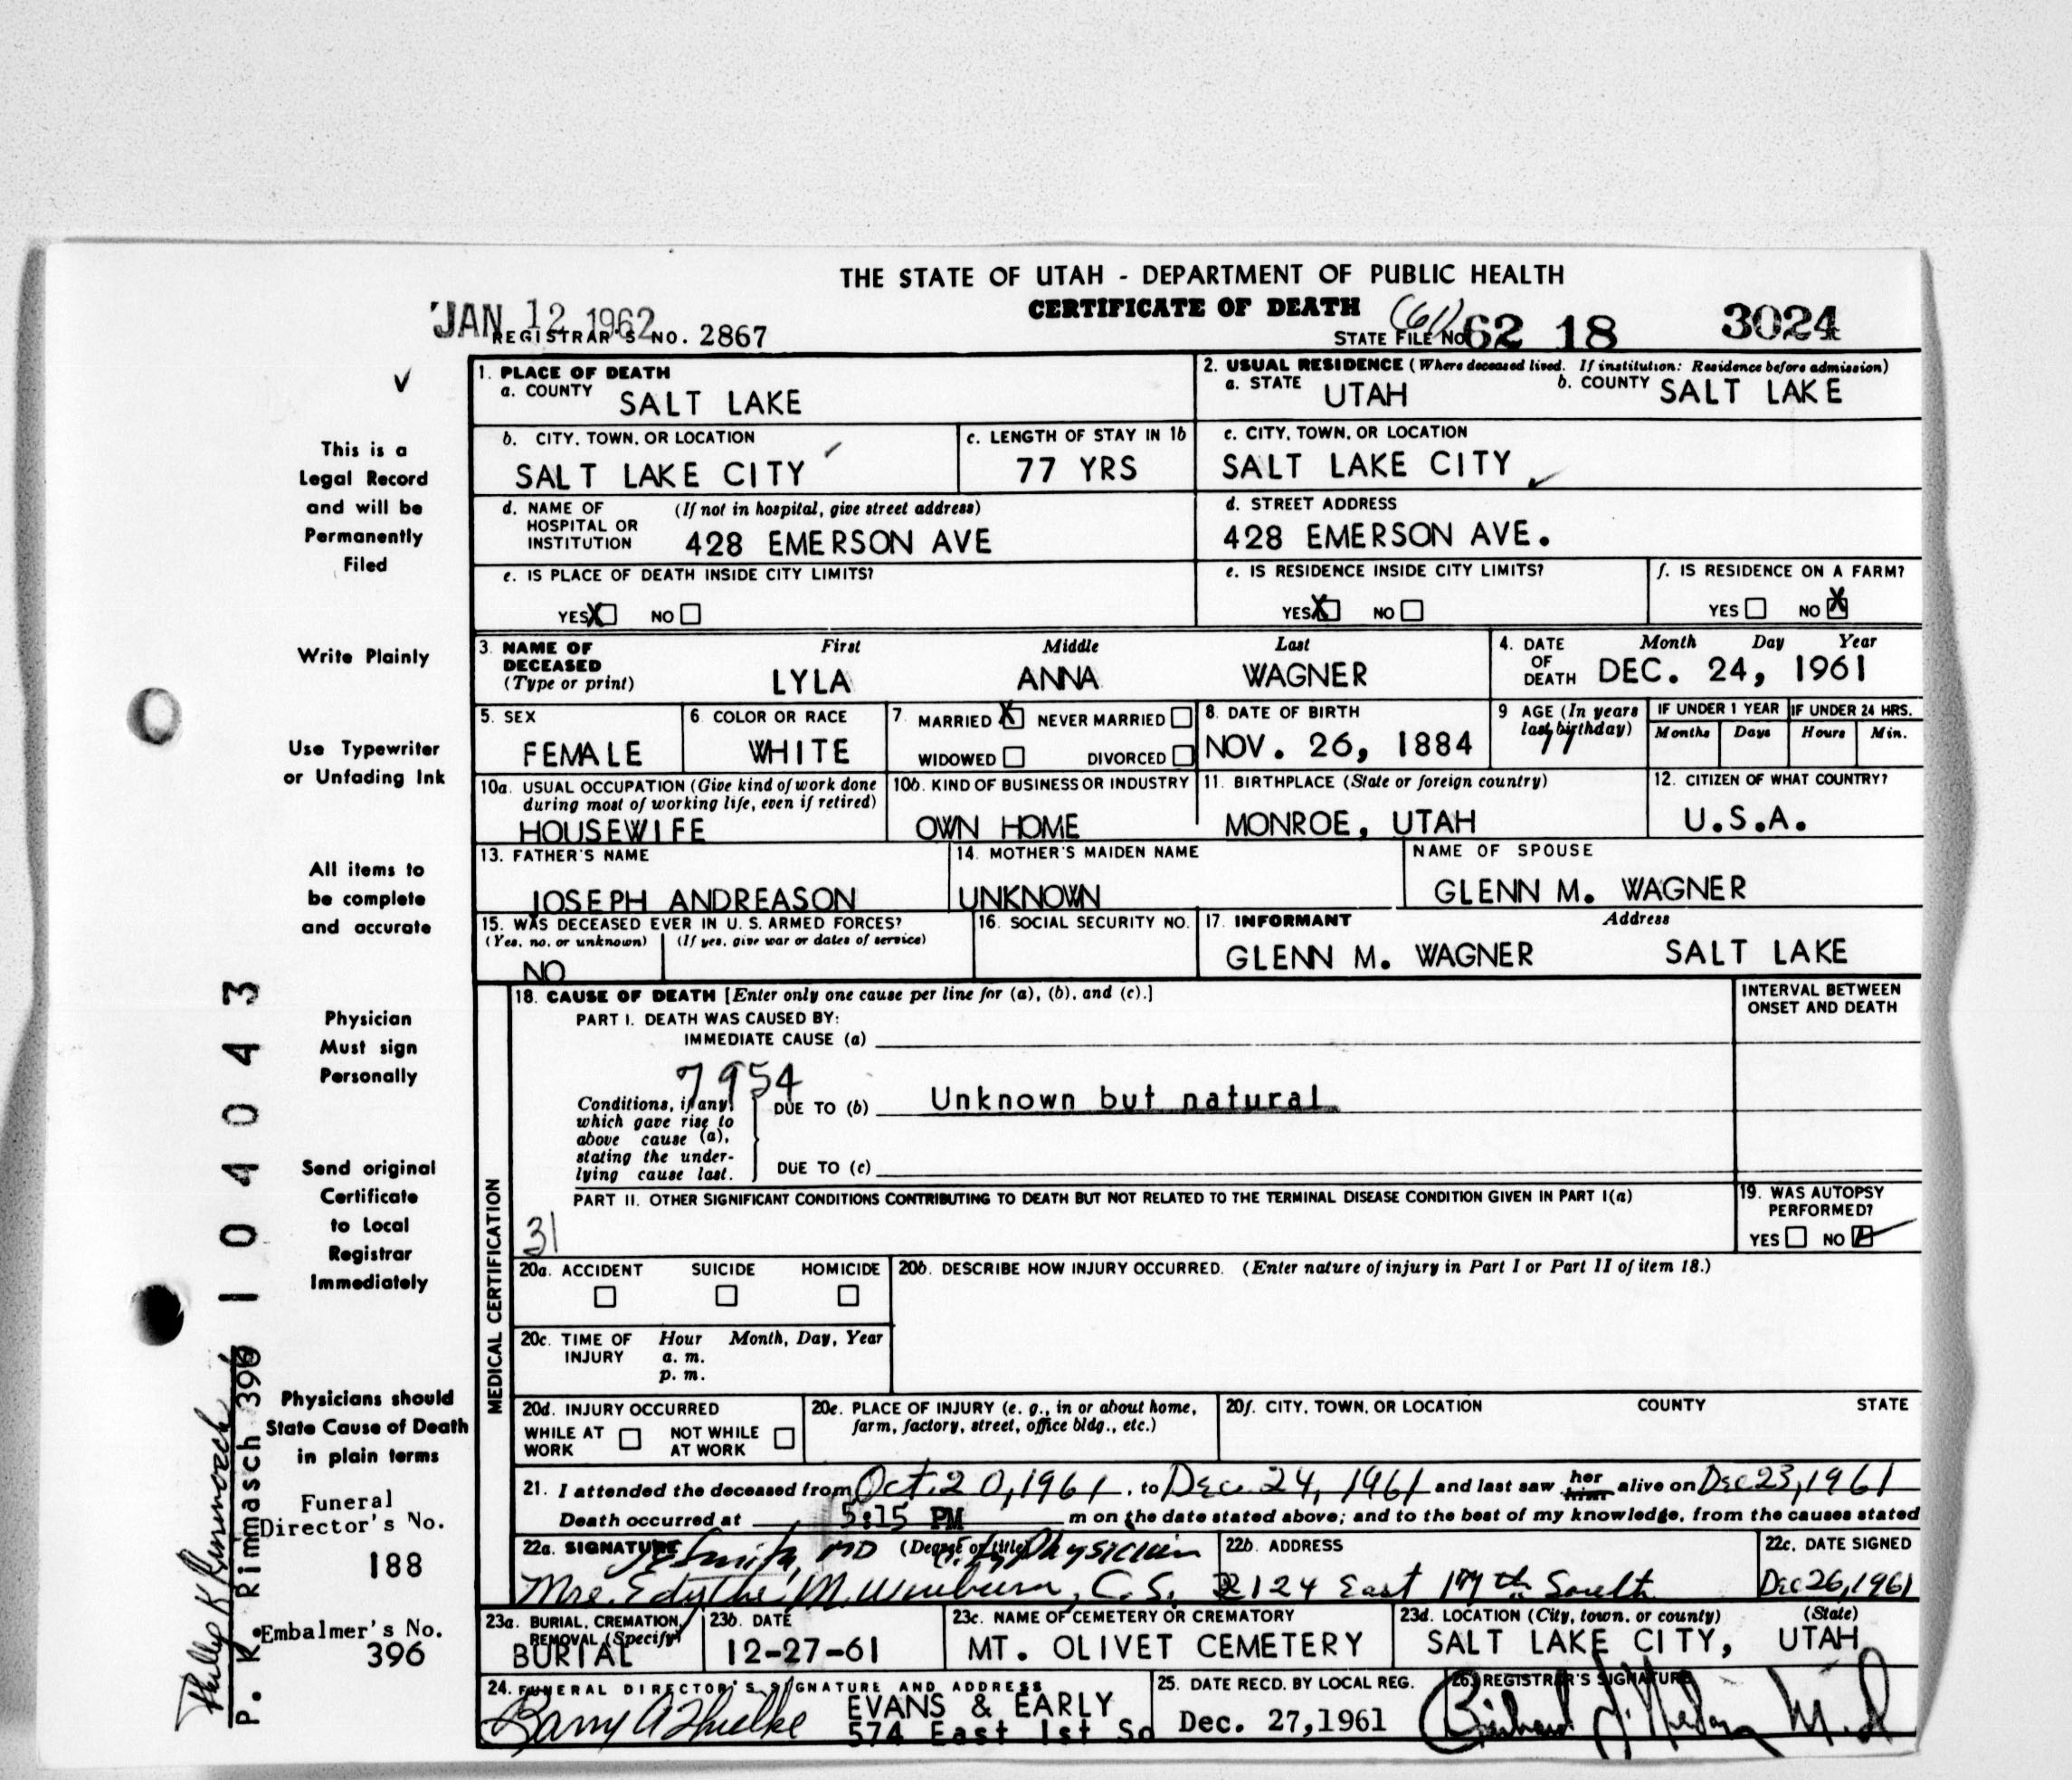 THE STATE OF UTAH - DEPARTMENT OF PUBLIC HEALTH
CERTIFICATE OF DEATH
JAN 12 1962
REGISTRAR'S NO. 2867
STATE FILE NO. (61) 62 18 3024
1. PLACE OF DEATH
a. COUNTY SALT LAKE
2. USUAL RESIDENCE (Where deceased lived. If institution: Residence before admission)
a. STATE UTAH b. COUNTY SALT LAKE
b. CITY, TOWN, OR LOCATION SALT LAKE CITY
c. LENGTH OF STAY IN 1b 77 YRS
c. CITY, TOWN, OR LOCATION SALT LAKE CITY
d. NAME OF HOSPITAL OR INSTITUTION (If not in hospital, give street address) 428 EMERSON AVE
d. STREET ADDRESS 428 EMERSON AVE.
e. IS PLACE OF DEATH INSIDE CITY LIMITS?
YES X NO
e. IS RESIDENCE INSIDE CITY LIMITS?
YES X NO
f. IS RESIDENCE ON A FARM?
YES NO X
3. NAME OF DECEASED (Type or print)
First Middle Last
LYLA ANNA WAGNER
4. DATE OF DEATH Month Day Year
DEC. 24, 1961
5. SEX FEMALE
6. COLOR OR RACE WHITE
7. MARRIED X NEVER MARRIED
WIDOWED DIVORCED
8. DATE OF BIRTH NOV. 26, 1884
9 AGE (In years last birthday) 77
IF UNDER 1 YEAR Months Days
IF UNDER 24 HRS. Hours Min.
10a. USUAL OCCUPATION (Give kind of work done during most of working life, even if retired)
HOUSEWIFE
10b. KIND OF BUSINESS OR INDUSTRY
OWN HOME
11. BIRTHPLACE (State or foreign country)
MONROE, UTAH
12. CITIZEN OF WHAT COUNTRY?
U.S.A.
13. FATHER'S NAME
JOSEPH ANDREASON
14. MOTHER'S MAIDEN NAME
UNKNOWN
NAME OF SPOUSE
GLENN M. WAGNER
15. WAS DECEASED EVER IN U. S. ARMED FORCES?
(Yes, no, or unknown) (If yes, give war or dates of service)
NO
16. SOCIAL SECURITY NO.
17. INFORMANT Address
GLENN M. WAGNER SALT LAKE
MEDICAL CERTIFICATION
18. CAUSE OF DEATH [Enter only one cause per line for (a), (b), and (c).]
INTERVAL BETWEEN ONSET AND DEATH
PART I. DEATH WAS CAUSED BY:
IMMEDIATE CAUSE (a)
7954
Conditions, if any, which gave rise to above cause (a), stating the underlying cause last.
DUE TO (b) Unknown but natural
DUE TO (c)
PART II. OTHER SIGNIFICANT CONDITIONS CONTRIBUTING TO DEATH BUT NOT RELATED TO THE TERMINAL DISEASE CONDITION GIVEN IN PART I(a)
31
19. WAS AUTOPSY PERFORMED?
YES NO
20a. ACCIDENT SUICIDE HOMICIDE
20b. DESCRIBE HOW INJURY OCCURRED. (Enter nature of injury in Part I or Part II of item 18.)
20c. TIME OF INJURY Hour Month, Day, Year
a. m.
p. m.
20d. INJURY OCCURRED
WHILE AT WORK NOT WHILE AT WORK
20e. PLACE OF INJURY (e. g., in or about home, farm, factory, street, office bldg., etc.)
20f. CITY, TOWN, OR LOCATION COUNTY STATE
21. I attended the deceased from Oct. 20, 1961, to Dec. 24, 1961 and last saw her him alive on Dec 23, 1961
Death occurred at 5:15 PM m on the date stated above; and to the best of my knowledge, from the causes stated
22a. SIGNATURE (Degree or title)
Smith, MD City Physician
Mrs. Edythe M. C. S.
22b. ADDRESS
2124 East 17th South
22c. DATE SIGNED
Dec 26, 1961
23a. BURIAL, CREMATION, REMOVAL (Specify)
BURIAL
23b. DATE
12-27-61
23c. NAME OF CEMETERY OR CREMATORY
MT. OLIVET CEMETERY
23d. LOCATION (City, town, or county) (State)
SALT LAKE CITY, UTAH
24. FUNERAL DIRECTOR'S SIGNATURE AND ADDRESS
EVANS & EARLY
574 East 1st So
25. DATE RECD. BY LOCAL REG.
Dec. 27, 1961
26. REGISTRAR'S SIGNATURE
This is a
Legal Record
and will be
Permanently
Filed
Write Plainly
Use Typewriter
or Unfading Ink
All items to
be complete
and accurate
Physician
Must sign
Personally
Send original
Certificate
to Local
Registrar
Immediately
Physicians should
State Cause of Death
in plain terms
Funeral
Director's No.
188
Embalmer's No.
396
104043
P. K. Rimmasch 396